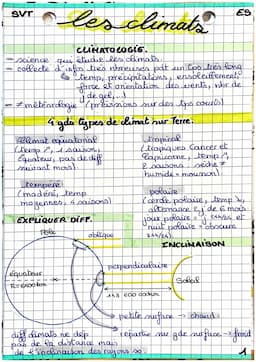 SVT
ES
les climats
CLIMATOLOGIE.
- science qui étudie les climats.
- collecte d'infos très nbreuses pdt un tps très long
↳ temp, précipitations, ensoleillement,
force et orientation des vents, nbr de
j de gel, ...
- ≠ météorologie (prévisions sur des tps courts)
4 gds types de climat sur Terre:
climat équatorial
(temp ↗, 1 saison,
équateur, pas de diff
suivant mois)
tropical
(tropiques Cancer et
Capricorne, temp ↗,
2 saisons: sèche ≠
humide = mousson)
tempéré
(modéré, temp
moyennes, 4 saisons)
polaire
(cercle polaire, temp ↘,
alternance j de 6 mois
jour polaire = j 24h/24 et
nuit polaire = obscure
24h/24)
EXPLIQUER DIFF.
INCLINAISON
Pôle
oblique
équateur
perpendiculaire
Soleil
petite surface → chaud
diff climats ne dép
pas de la distance mais
de l'inclinaison des rayons so.
répartie sur gde surface → froid
1